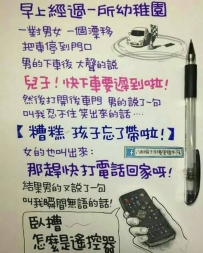 早上經過一所幼稚園
一對男女 一個漂移
把車停到門口
男的下車後 大聲的說
兒子！快下車要遲到啦！
然後打開後車門 男的說了一句
叫我忍不住笑出來的話....
【糟糕 孩子忘了帶啦！】
女的也叫出來：
那趕快打電話回家呀！
結果男的又說了一句
叫我瞬間無語的話！
臥槽
怎麼是遙控器